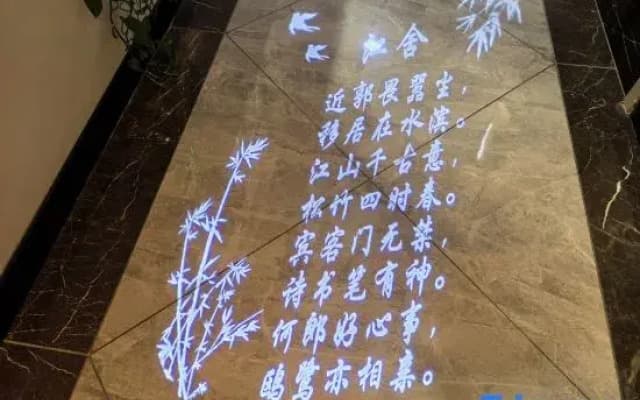 江舍
近郭畏嚣尘，
移居在水滨。
江山千古意，
松竹四时春。
宾客门无禁，
诗书笔有神。
何郎好心事，
鸥鹭亦相亲。